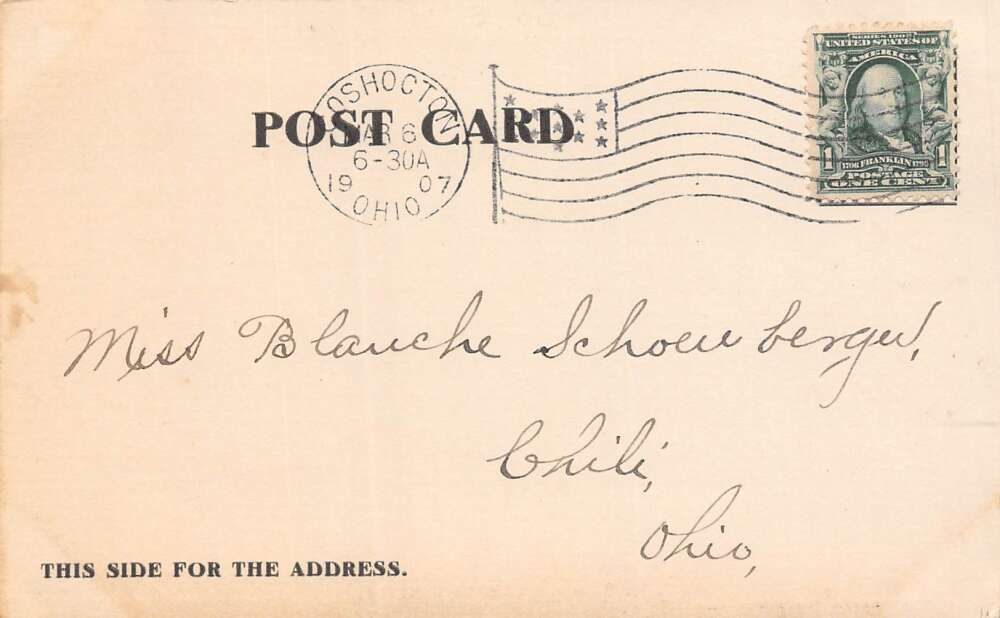 SERIES 1902
UNITED STATES OF
AMERICA
1 1706 FRANKLIN 1790 1
POSTAGE
ONE CENT
COSHOCTON
MAR 6
6-30A
19 07
OHIO
POST CARD
Miss Blanche Schoenberger,
Chili,
Ohio,
THIS SIDE FOR THE ADDRESS.